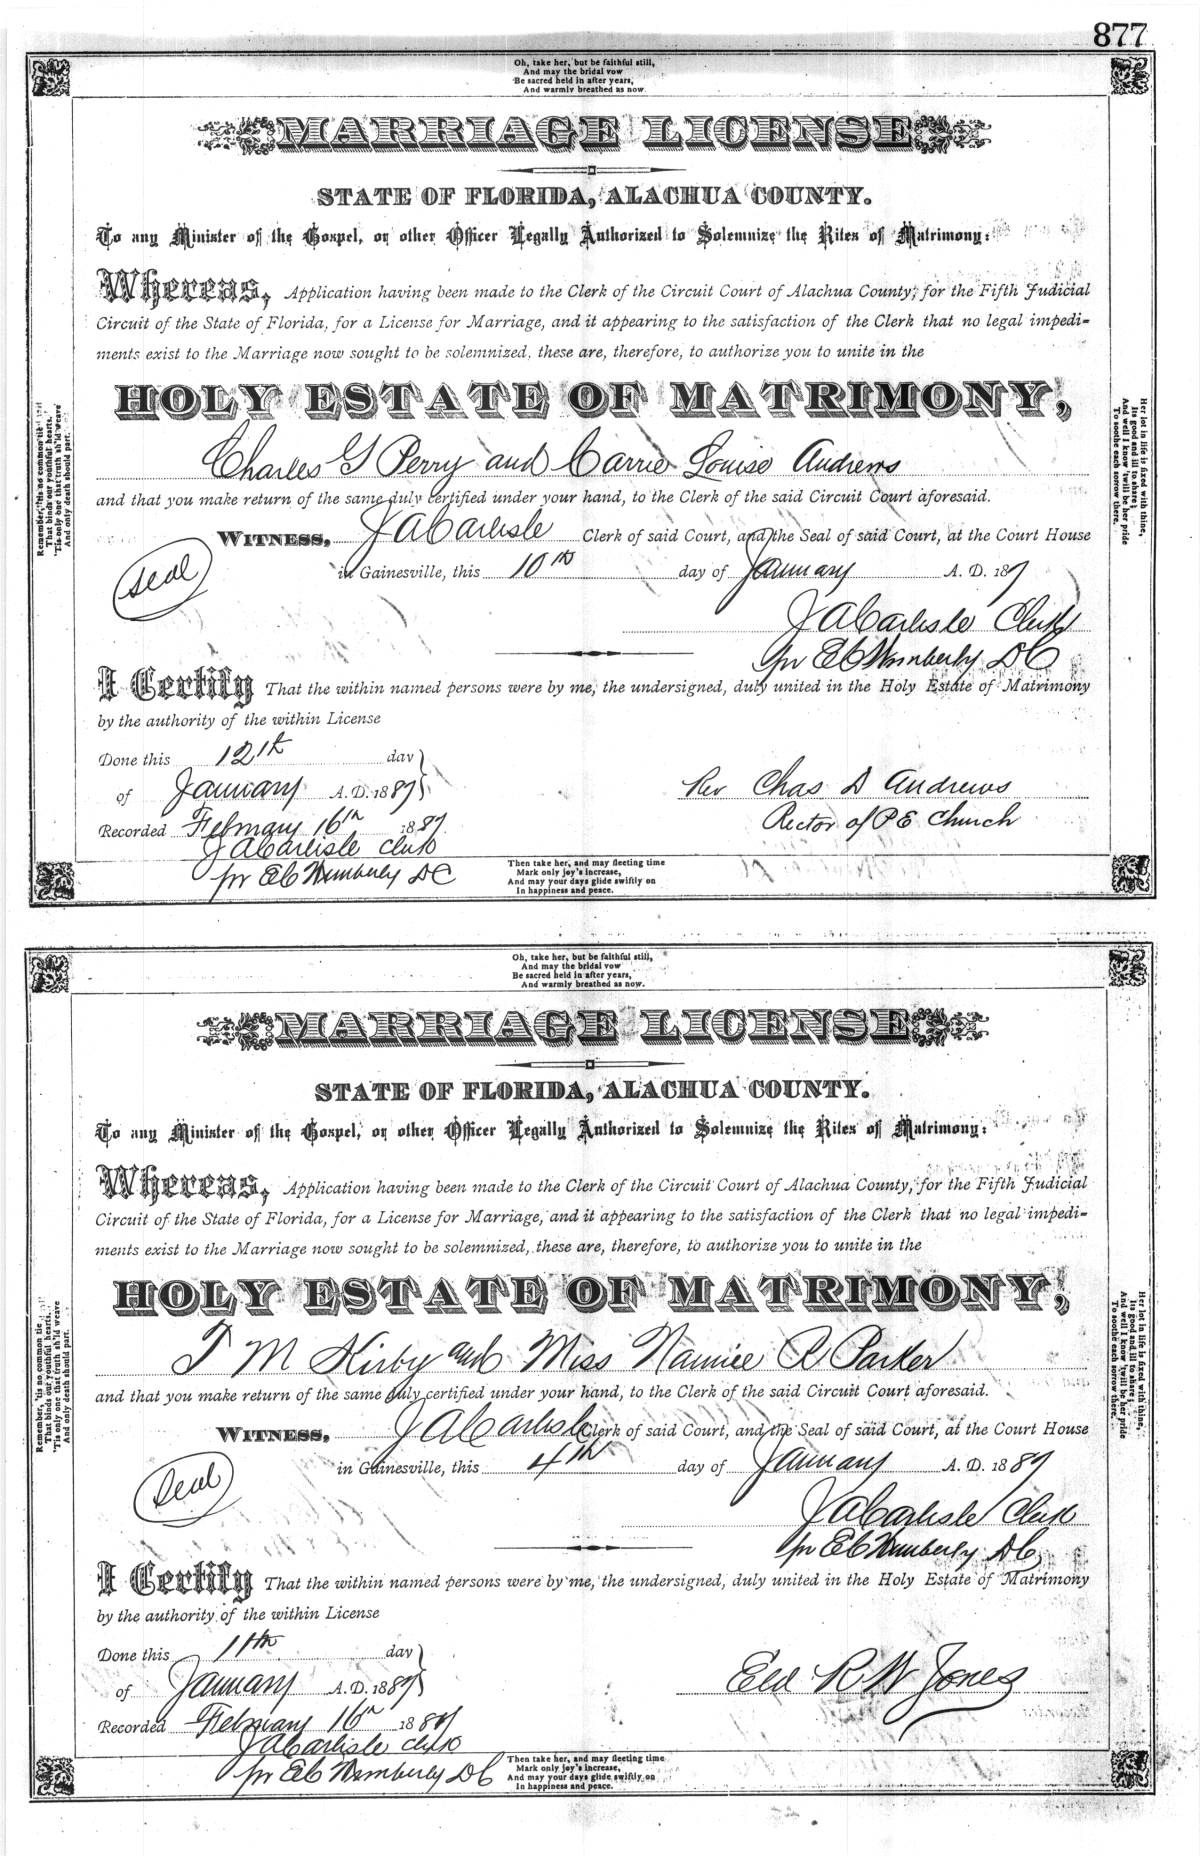 877
Oh, take her, but be faithful still,
And may the bridal vow
Be sacred held in after years,
And warmly breathed as now.
MARRIAGE LICENSE
STATE OF FLORIDA, ALACHUA COUNTY.
To any Minister of the Gospel, or other Officer Legally Authorized to Solemnize the Rites of Matrimony:
Whereas, Application having been made to the Clerk of the Circuit Court of Alachua County, for the Fifth Judicial
Circuit of the State of Florida, for a License for Marriage, and it appearing to the satisfaction of the Clerk that no legal impedi-
ments exist to the Marriage now sought to be solemnized, these are, therefore, to authorize you to unite in the
HOLY ESTATE OF MATRIMONY,
Charles G Perry and Carrie Louise Andrews
and that you make return of the same duly certified under your hand, to the Clerk of the said Circuit Court aforesaid.
WITNESS, J A Carlisle Clerk of said Court, and the Seal of said Court, at the Court House
in Gainesville, this 10th day of January A. D. 187
Seal
J A Carlisle Clerk
pr E C Wimberly D C
I Certify That the within named persons were by me, the undersigned, duly united in the Holy Estate of Matrimony
by the authority of the within License
Done this 12th day
of January A. D. 1887
Rev Chas D Andrews
Rector of P E Church
Recorded February 16th 1887
J A Carlisle Clerk
pr E C Wimberly D C
Then take her, and may fleeting time
Mark only joy's increase,
And may your days glide swiftly on
In happiness and peace.
Remember, 'tis no common tie
That binds our youthful hearts,
'Tis only one that truth sh'ld weave
And only death should part.
Her lot in life is fixed with thine,
Its good and ill to share;
And well I know 'twill be her pride
To soothe each sorrow there.
Oh, take her, but be faithful still,
And may the bridal vow
Be sacred held in after years,
And warmly breathed as now.
MARRIAGE LICENSE
STATE OF FLORIDA, ALACHUA COUNTY.
To any Minister of the Gospel, or other Officer Legally Authorized to Solemnize the Rites of Matrimony:
Whereas, Application having been made to the Clerk of the Circuit Court of Alachua County, for the Fifth Judicial
Circuit of the State of Florida, for a License for Marriage, and it appearing to the satisfaction of the Clerk that no legal impedi-
ments exist to the Marriage now sought to be solemnized, these are, therefore, to authorize you to unite in the
HOLY ESTATE OF MATRIMONY,
T M Kirby and Miss Nannie R Parker
and that you make return of the same duly certified under your hand, to the Clerk of the said Circuit Court aforesaid.
WITNESS, J A Carlisle Clerk of said Court, and the Seal of said Court, at the Court House
in Gainesville, this 4th day of January A. D. 1887
Seal
J A Carlisle Clerk
pr E C Wimberly D C
I Certify That the within named persons were by me, the undersigned, duly united in the Holy Estate of Matrimony
by the authority of the within License
Done this 11th day
of January A. D. 1887
Eld R W Jones
Recorded February 16th 1887
J A Carlisle Clerk
pr E C Wimberly D C
Then take her, and may fleeting time
Mark only joy's increase,
And may your days glide swiftly on
In happiness and peace.
Remember, 'tis no common tie
That binds our youthful hearts,
'Tis only one that truth sh'ld weave
And only death should part.
Her lot in life is fixed with thine,
Its good and ill to share;
And well I know 'twill be her pride
To soothe each sorrow there.